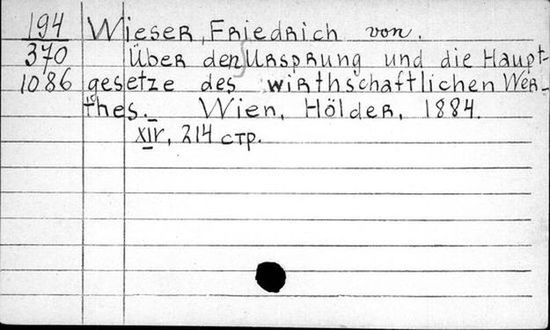 194 Wieser, Friedrich von.
370 Über den Ursprung und die Haupt-
1086 gesetze des wirthschaftlichen Wer-
thes. Wien, Hölder, 1884.
XIV, 214 стр.